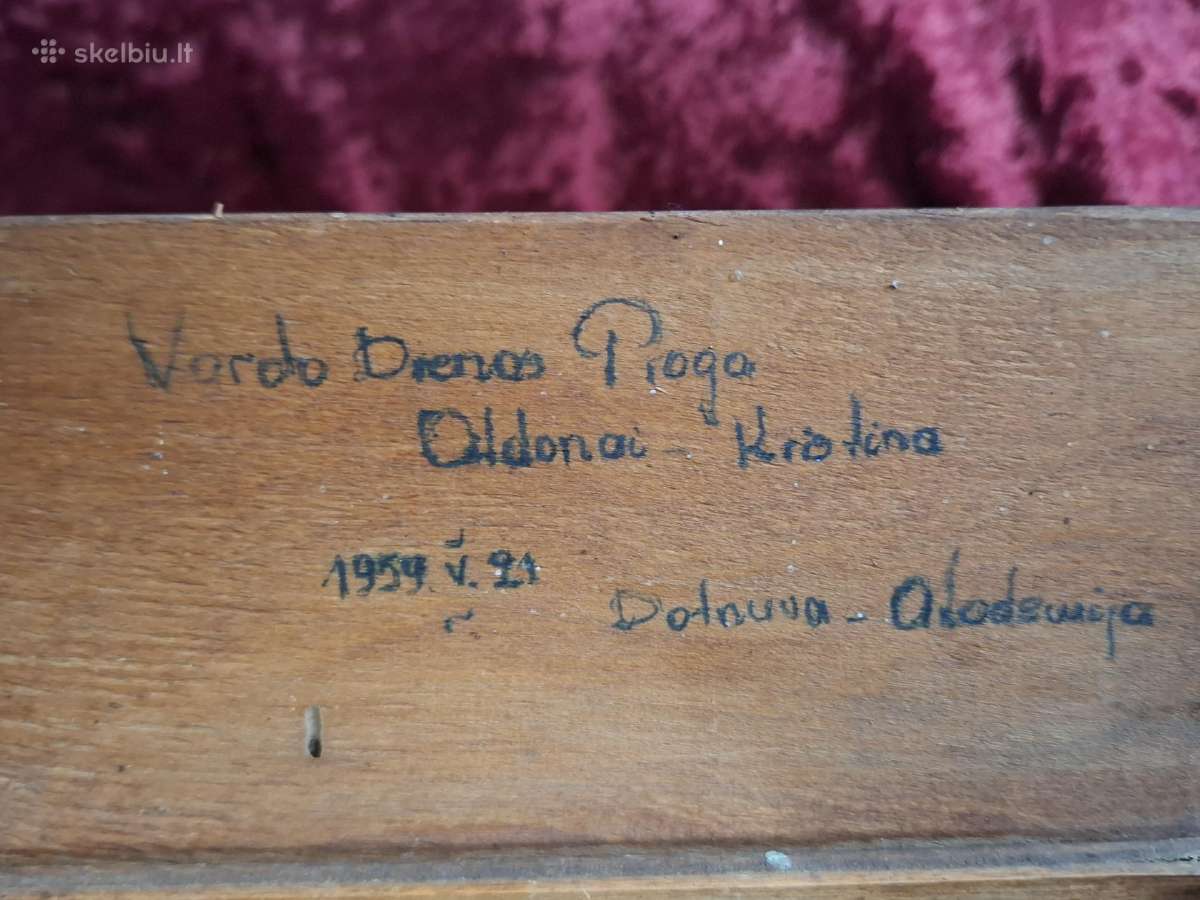 skelbiu.lt
Vardo Dienos Proga
Aldonai - Kristina
1959. V. 21
Dotnuva - Akademija